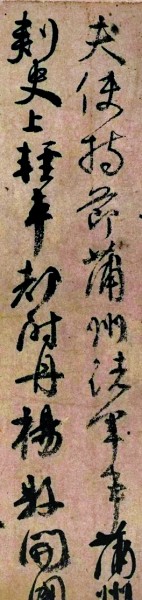 夫使持節蒲州諸軍事蒲州
刺史上輕車都尉丹楊縣開國